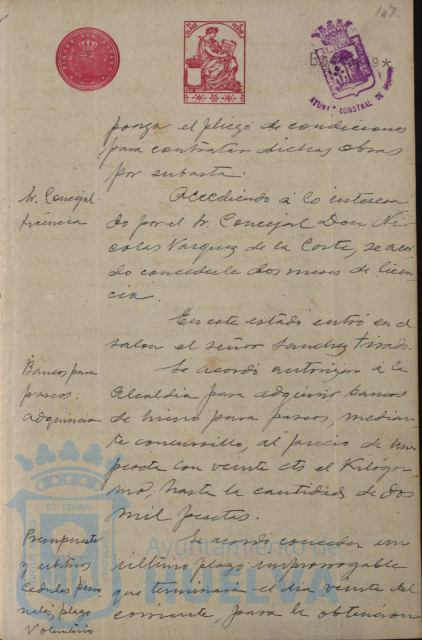 107.
AYUNT CONSTNAL DE
ponga el pliego de condiciones
para contratar dichas obras
por subasta.
Sr. Concejal
licencia
Accediendo á lo interesa-
do por el Sr. Concejal Don Ni-
colas Vazquez de la Corte, se acor-
do concederle dos meses de licen-
cia.
En este estado entró en el
salon el señor Sanchez Tirado.
Bancos para
paseos.
adquisicion
Se acordó autorizar á la
Alcaldia para adquirir bancos
de hierro para paseos, median-
te concursillo, al precio de una
peseta con veinte cts el Kilogra-
mo, hasta la cantidad de dos
mil pesetas.
y arbitrios
Cedulas perso
nales, plazo
Voluntario
Se acordó conceder un
ultimo plazo improrrogable
que terminará el dia veinte del
corriente, para la obtencion
Ayuntamiento de
HUELVA